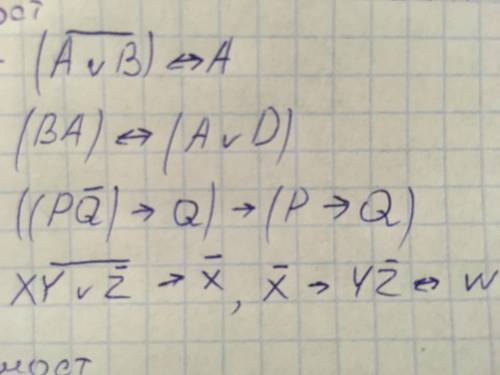 ост
- (A̅ ̅v̅ ̅B̅) ↔ A
(BA) ↔ (A v D)
((PQ̅) → Q) → (P → Q)
XY̅ ̅v̅ ̅Z̅̅ → X̅, X̅ → YZ̅ ↔ W
ност